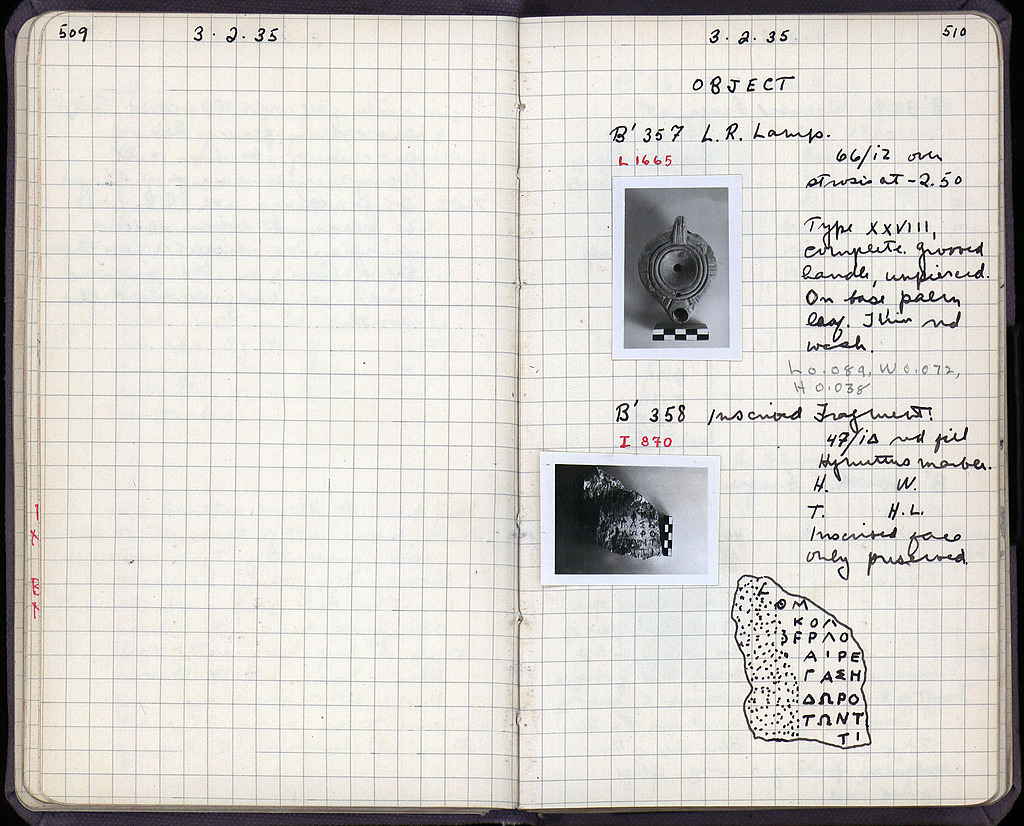 509
3 · 2 · 35
3 · 2 · 35
510
OBJECT
B' 357 L.R. Lamp.
L 1665
66/ΙΖ on
strosis at -2.50
Type XXVIII,
complete. grooved
handle, unpierced.
On base palm
leaf. Thin red
wash.
L 0.089, W 0.072,
H 0.038
B' 358 Inscribed Fragment.
I 870
47/ΙΔ red fill
Hymettus marble.
H. W.
T. H.L.
Inscribed face
only preserved.
ΟΜ
ΚΟΛ
ΕΡΛΟ
ΑΙΡΕ
ΓΑΣΗ
ΔΩΡΟ
ΤΩΝΤ
ΤΙ